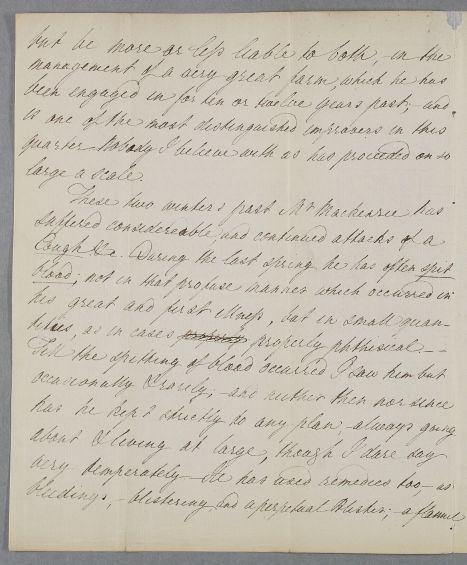 but be more or less liable to both, in the
management of a very great farm, which he has
been engaged in for ten or twelve years past; and
is one of the most distinguished improvers in this
quarter. Nobody I believe with us has proceeded on so
large a scale.
These two winters past Mr Mackenzie has
suffered considerable, and continued attacks of a
Cough &c. During the last Spring he has often spit
blood; not in that profuse manner which occurred in
his great and first illness, but in small quan-
tities, as in cases properly phthisical --
Till the spitting of blood occurred I saw him but
occasionally & rarely; and neither then nor since
has he kept strictly to any plan, always going
about & living at large, though I dare say
very temperately. He has used remedies too, as
bleedings, - blistering and a perpetual Blister; - a flannel